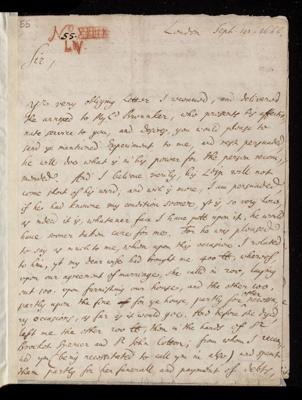 55
N 55.
LV.
London Sept. 1666.
Sir,
Yr very obliging Letter I received, and delivered
the annexed to My Ld Brounker, who presents his affectio
nate service to you, and desires, you would please to
send ye mentioned Experiment to me, and rests persuaded
he will doe what is in his power for the person recom-
mended. And I believe verily, his Ldp will not
come short of his word, and wch is more, I am persuaded
if he had knowne my condition sooner, yt is so very low,
as indeed it is, whatever face I have putt upon it, he would
have sooner taken care for me. For he was pleased
to say as much to me, when upon this occasion I related
to him, yt my dear wife had brought me 400 lb, whereof
upon our agreement of marriage, she called in 200, laying
out 100. upon furnishing our house, and the other 100.
partly upon the fine for ye house, partly for necessa-
ry occasions, as far as it would goe. And before she dyed
left me the other 200 lb, then in the hands of Sr
Brocket Spencer and Sr John Cotton; from whom I recei-
ved ym (being necessitated to call ym in also) and spent
them partly for her funerall and payment of debts,